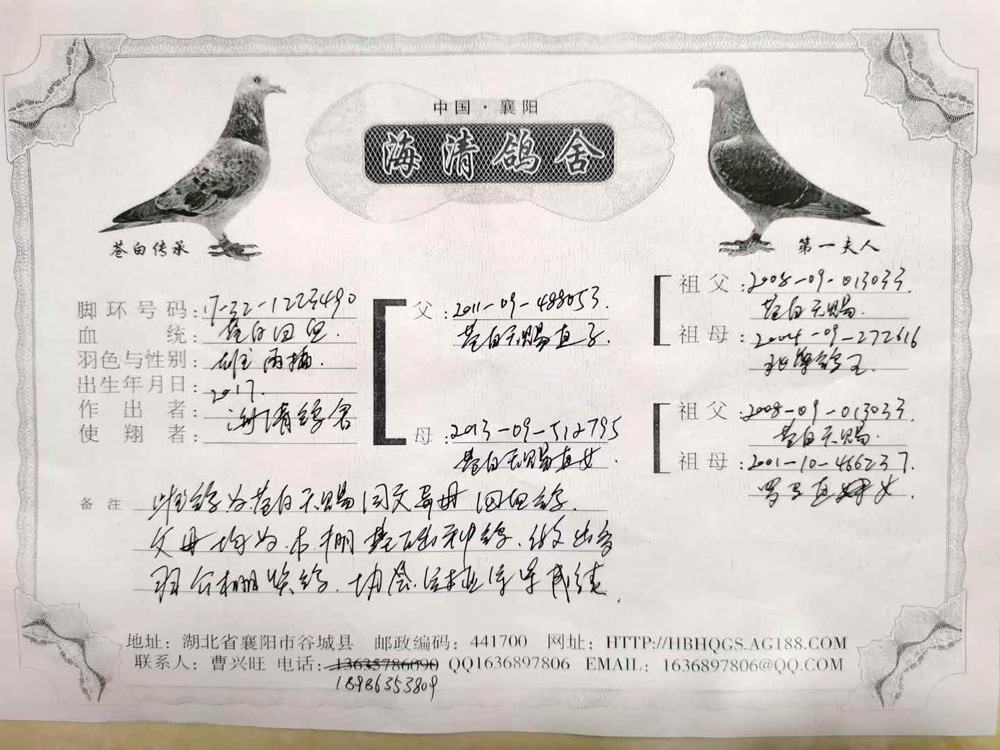 中国·襄阳
海清鸽舍
苍白传承
第一夫人
脚环号码：17-22-1223490
血统：苍白回血.
羽色与性别：雄 雨插.
出生年月日：2017.
作出者：海清鸽舍
使翔者：
父：2011-09-488053.
苍白天赐直子.
母：2013-09-512795
苍白天赐直女
祖父：2008-09-013033.
苍白天赐.
祖母：2004-09-272616
祖父：2008-09-013033.
苍白天赐.
祖母：2001-10-466237.
备注 此鸽为苍白天赐同父异母回血鸽.
父母均为本棚基础种鸽.做出多
羽公棚奖鸽.
地址：湖北省襄阳市谷城县 邮政编码：441700 网址：HTTP://HBHQGS.AG188.COM
联系人：曹兴旺 电话：13635786090 QQ1636897806 EMAIL：1636897806@QQ.COM
18986353809